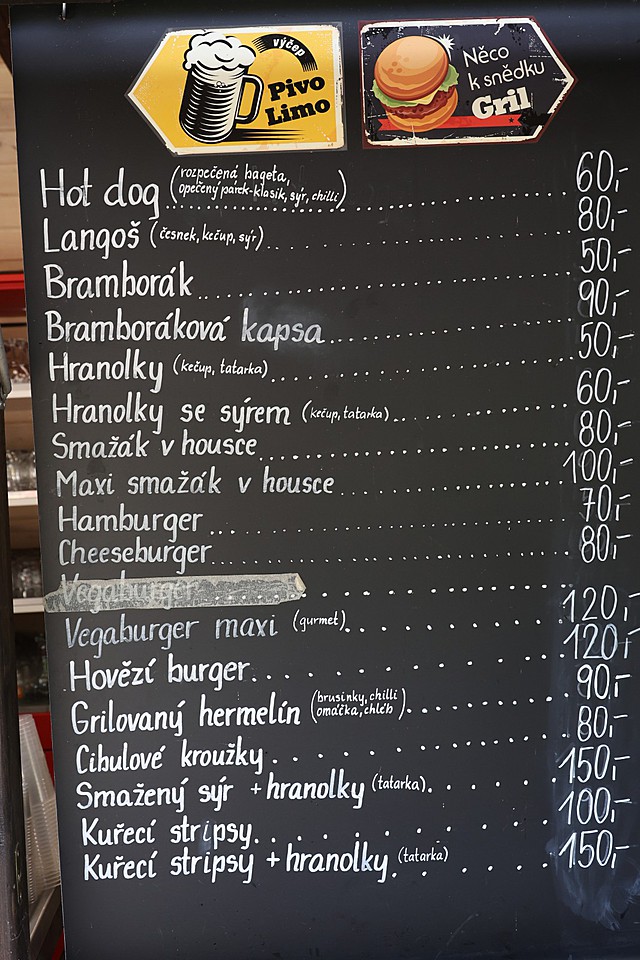 výčep
Pivo
Limo
Něco
k snědku
Gril
Hot dog (rozpečená bageta, opečený párek-klasik, sýr, chilli) 60,-
Langoš (česnek, kečup, sýr) 80,-
Bramborák 50,-
Bramboráková kapsa 90,-
Hranolky (kečup, tatarka) 50,-
Hranolky se sýrem (kečup, tatarka) 60,-
Smažák v housce 80,-
Maxi smažák v housce 100,-
Hamburger 70,-
Cheeseburger 80,-
Vegaburger
Vegaburger maxi (gurmet) 120,-
Hovězí burger 120,-
Grilovaný hermelín (brusinky, chilli omáčka, chléb) 90,-
Cibulové kroužky 80,-
Smažený sýr + hranolky (tatarka) 150,-
Kuřecí stripsy 100,-
Kuřecí stripsy + hranolky (tatarka) 150,-